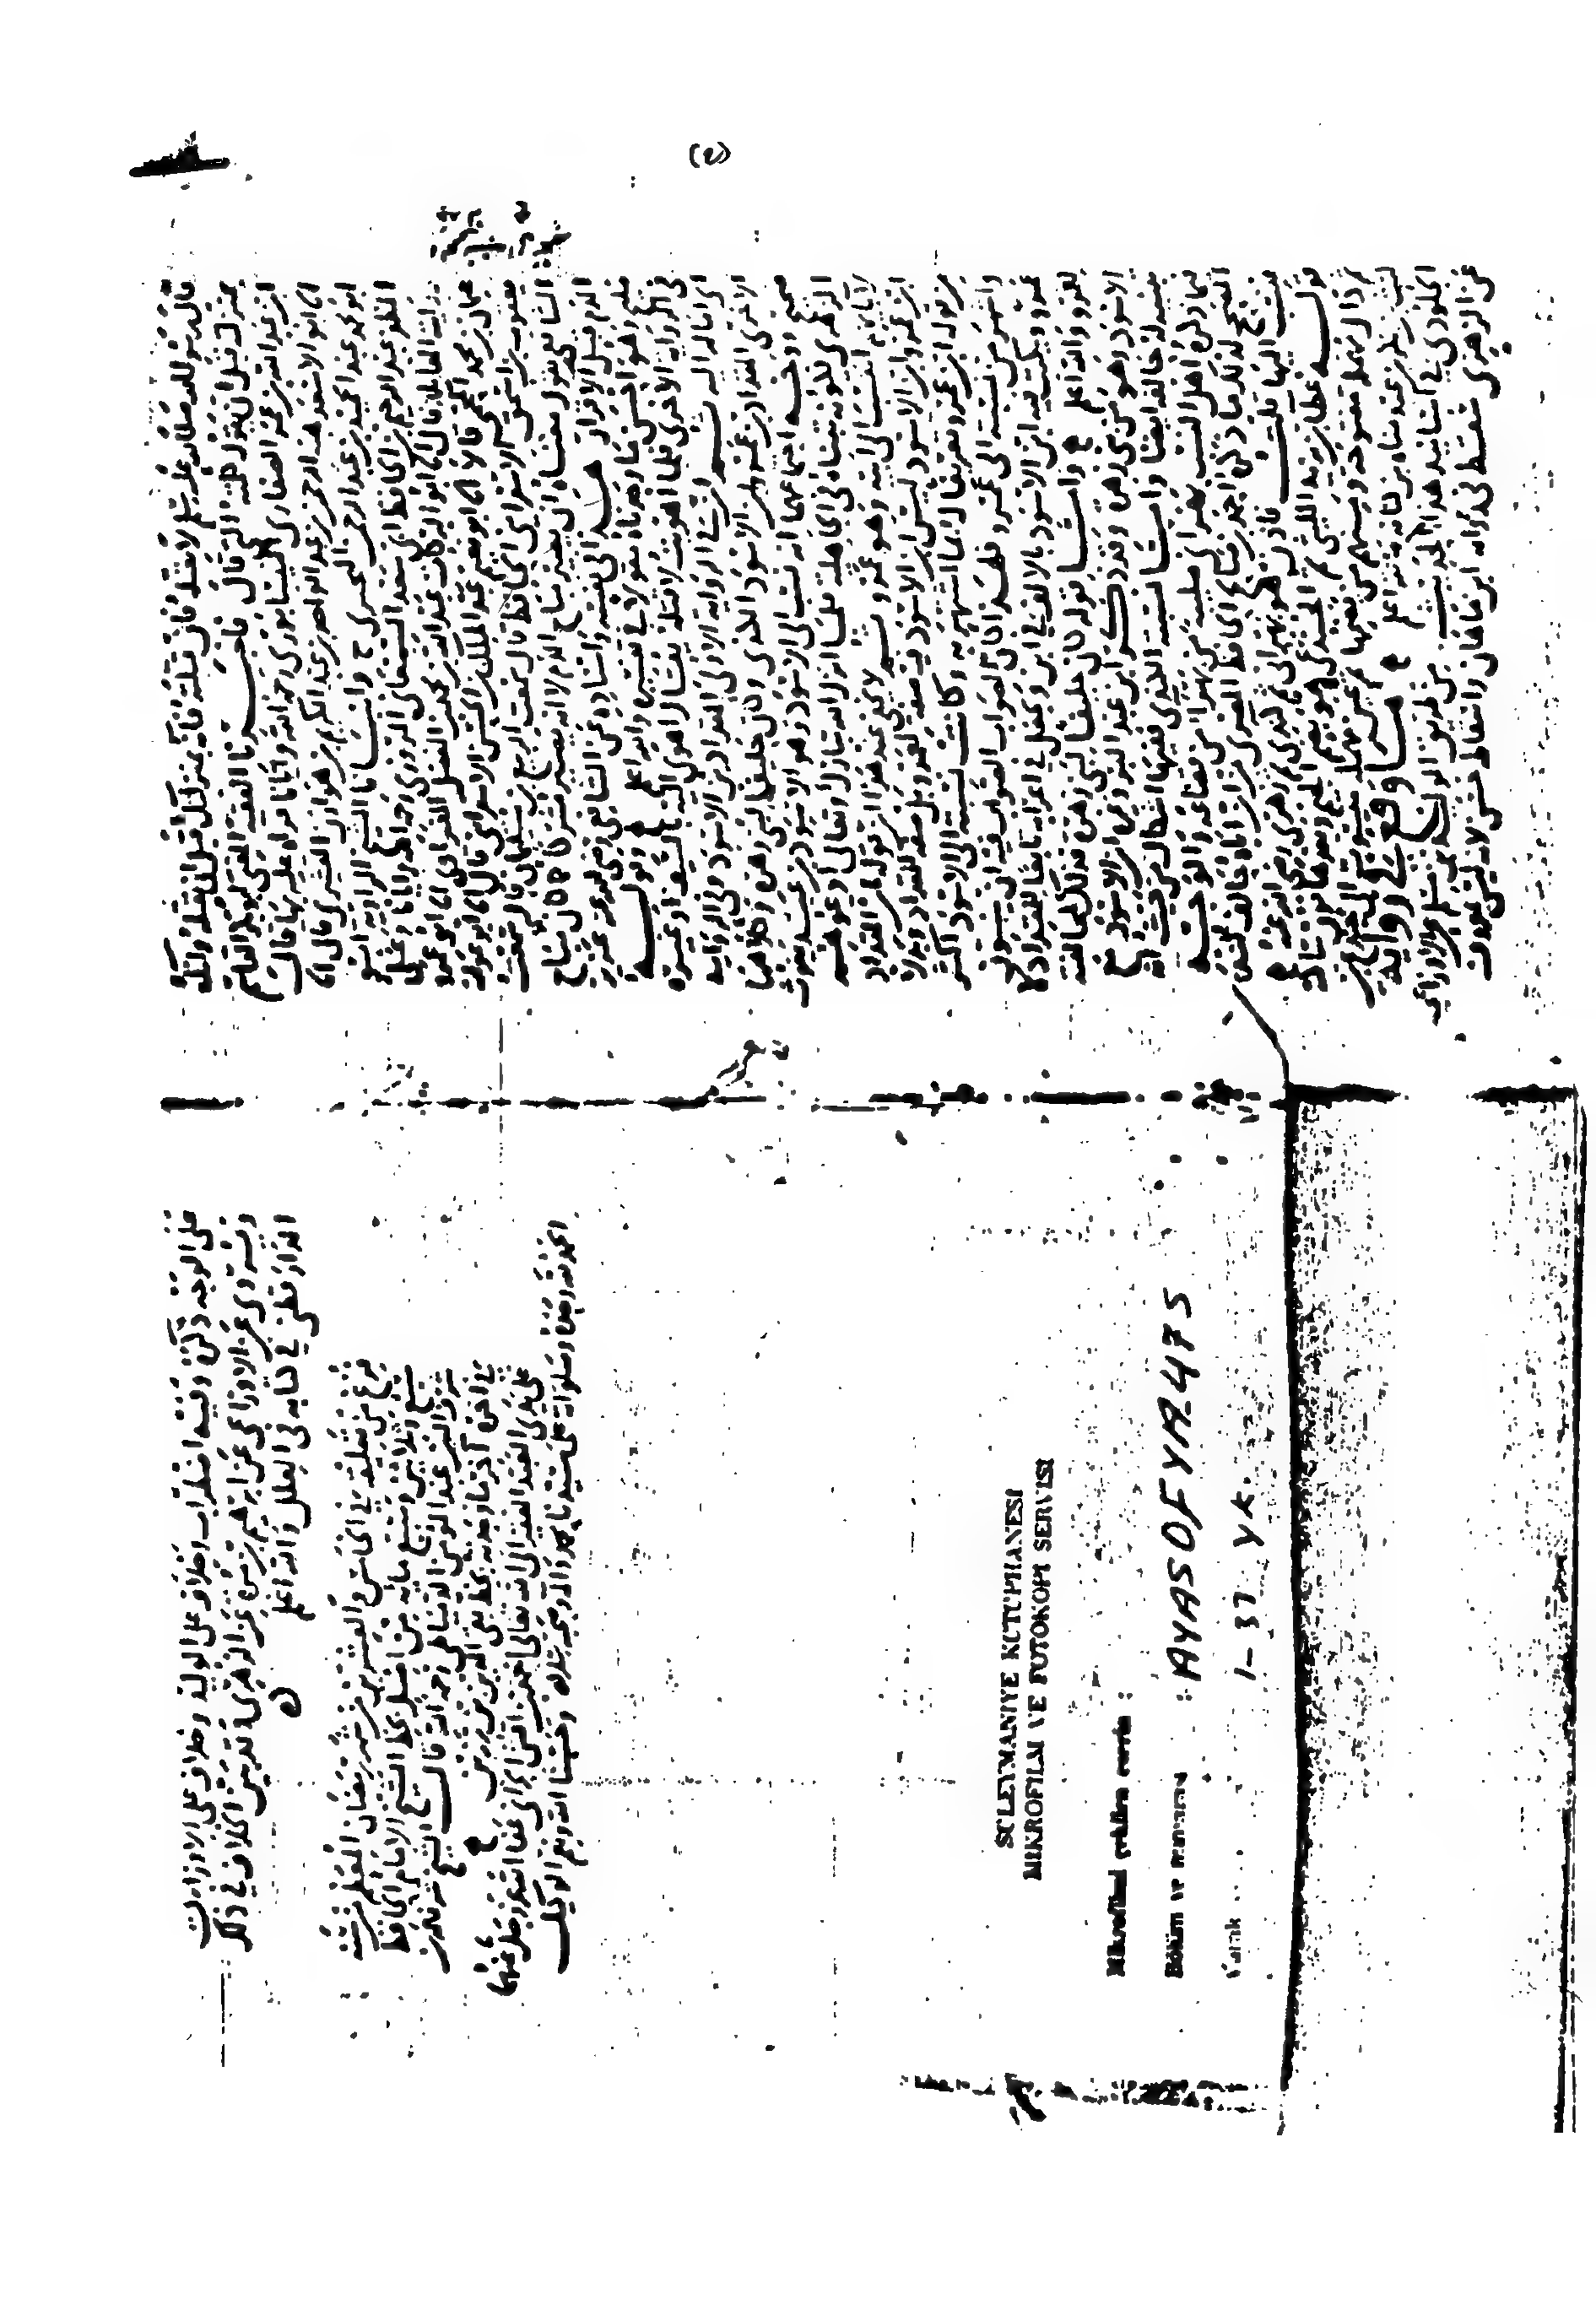 قال رسول الله صلى الله عليه وسلم لا تقتله فان قتلته فانه بمنزلتك قبل ان تقتله وانك
بمنزلته قبل ان يقول كلمته التي قال فاخبرنا الفقيه المفتي ابو بكر القاسم
ابن عبد الله بن عمر الصفاري النيسابوري رحمه الله وايانا قراة عليه بها قال
انا ابو الاسعد هبة الرحمن بن عبد الواحد بن عبد الكريم بن هوازن القشيري قال انا
ابو محمد عبد الحميد بن عبد الرحمن البحيري ح وانبانا الشيخ الراوية ابو
المظفر عبد الرحيم بن الحافظ ابي سعد السمعاني المروزي رحمه الله وايانا
قال انا ابو البركات عبد الله بن محمد بن الفضل الفراوي انا ابو عمرو
عثمان بن محمد المحمي قالا انا ابو نعيم عبد الملك بن الحسن الاسفرايني قال انا ابو عوانة
يعقوب بن اسحق الاسفرايني الحافظ قال سمعت الربيع بن سليمان قال سمعت
الشافعي يقول معناه ان يصير مباح الدم لا انه يصير مشركا كما كان مباح
الدم قبل الاقرار هذا في نفسه واسناده عن الشافعي رضي الله عنه عزيز
مليح وهو احسن ما وجدناه مقولا في تفسيره والله اعلم وقوله
في الرواية الاخرى فلما اهويت لاقتله يقال اهوى اليه بالسيف او غيره
اي اماله اليه ثم ان في الرواية الاولى المقداد بن الاسود وفي الرواية
الاخرى المقداد بن عمرو ابن الاسود الكندي وكان حليفا لبني زهرة وكلاهما
صحيح ووجه اجتماعهما انه نسب الى الاسود وهو الاسود بن عبد يغوث
الزهري لكونه تبناه في الجاهلية فلما انزل الله تبارك وتعالى ادعوهم
لابائهم انتسب الى ابيه وهو عمرو ثم لا يخفى عند هذا ان قوله المقداد
ابن عمرو ابن الاسود ليس ابن الاسود فيه صفة لعمرو بل صفة للمقداد وبدلا
من قوله ابن عمرو تعريفا له بما اشتهر به وكانت نسبته الى الاسود اكثر
واشهر من نسبته الى عمرو فلهذا كان الصواب فيه ان ينون
عمرو ويكتب فيه ابن الاسود بالالف في ابن ويجعل في اعرابه تابعا للمقداد لا
لعمرو والله اعلم واما قوله كان حليفا لبني زهرة فذلك لمحالفته
الاسود وهو من بني زهرة وقد ذكر ابن عبد البر وغيره ان الاسود مع
تبنيه له حالفه ايضا واما نسبته الكندي ففيها اشكال من حيث ان
اهل النسب بهراني صلبية من بهراء من قضاعة والوجه
الصحيح لذلك ما ذكره احمد بن صالح الحافظ المصري من ان اباه حالف كندة
فنسب اليها قلت
قوله عطاء بن يزيد الليثي ثم الجندعي هو بضم الجيم وبعدها نون ساكنة
ثم دال مهملة مفتوحة ومنهم من يضمها ثم عين مهملة
ليث بن بكر بن عبد مناة بن كنانة والله اعلم ما وقع في رواية
الجلودي في اسانيد هذا الحديث من طريق الوليد بن مسلم والاوزاعي
عن الزهري سقط في رواية ابن ماهان واسقاط حسن لانه ليس بمعروف
على الوجه ذكره وفيه اضطراب وخلاف على الوليد وخلاف على الاوزاعي
ويروى عن الاوزاعي عن ابراهيم بن مرة عن الزهري وقد بين الخلاف في ذلك
الدارقطني في كتابه في العلل والله اعلم
فرغ من تعليقه في الخامس والعشرين من شهر رمضان المعظم سنة
سبع وثلاثين وسبع مائة من اصل بخط الشيخ الامام الحافظ
شرف الدين عبد المؤمن الدمياطي رحمه الله قال الشيخ شرف الدين
في اخره اخر ما وجد به بخط تقي الدين بن رزين
على يدي العبد الفقير الى الله تعالى عفا الله عز وجل عنهما
الحمد لله وحده وصلواته على سيدنا محمد واله وصحبه وسلامه وحسبنا الله ونعم الوكيل
SÜLEYMANİYE KÜTÜPHANESİ
MİKROFİLM VE FOTOKOPİ SERVİSİ
AYASOFYA 475
Varak 1-37 YK.